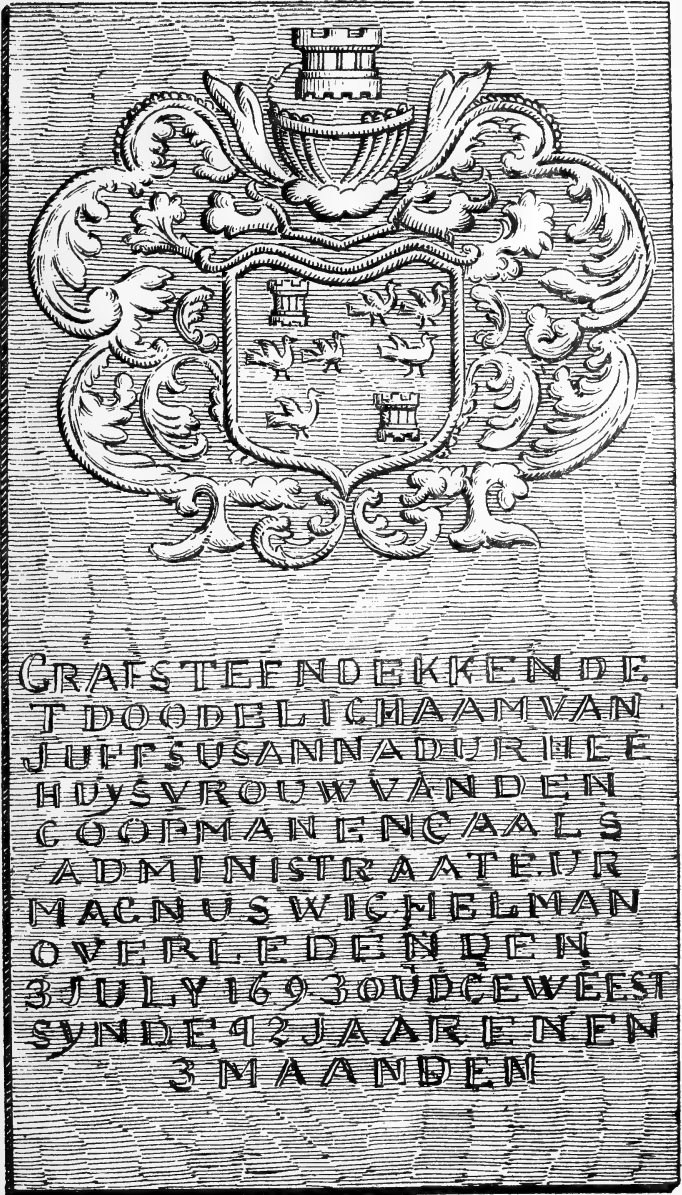 GRAFSTEEN DEKKENDE
T DOODELICHAAM VAN
JUFF SUSANNA DURHEE
HUYSVROUW VAN DEN
COOPMAN EN CAALS
ADMINISTRAATEUR
MAGNUS WICHELMAN
OVERLEDEN DEN
3 JULY 1693 OUD GEWEEST
SYNDE 92 JAAREN EN
3 MAANDEN